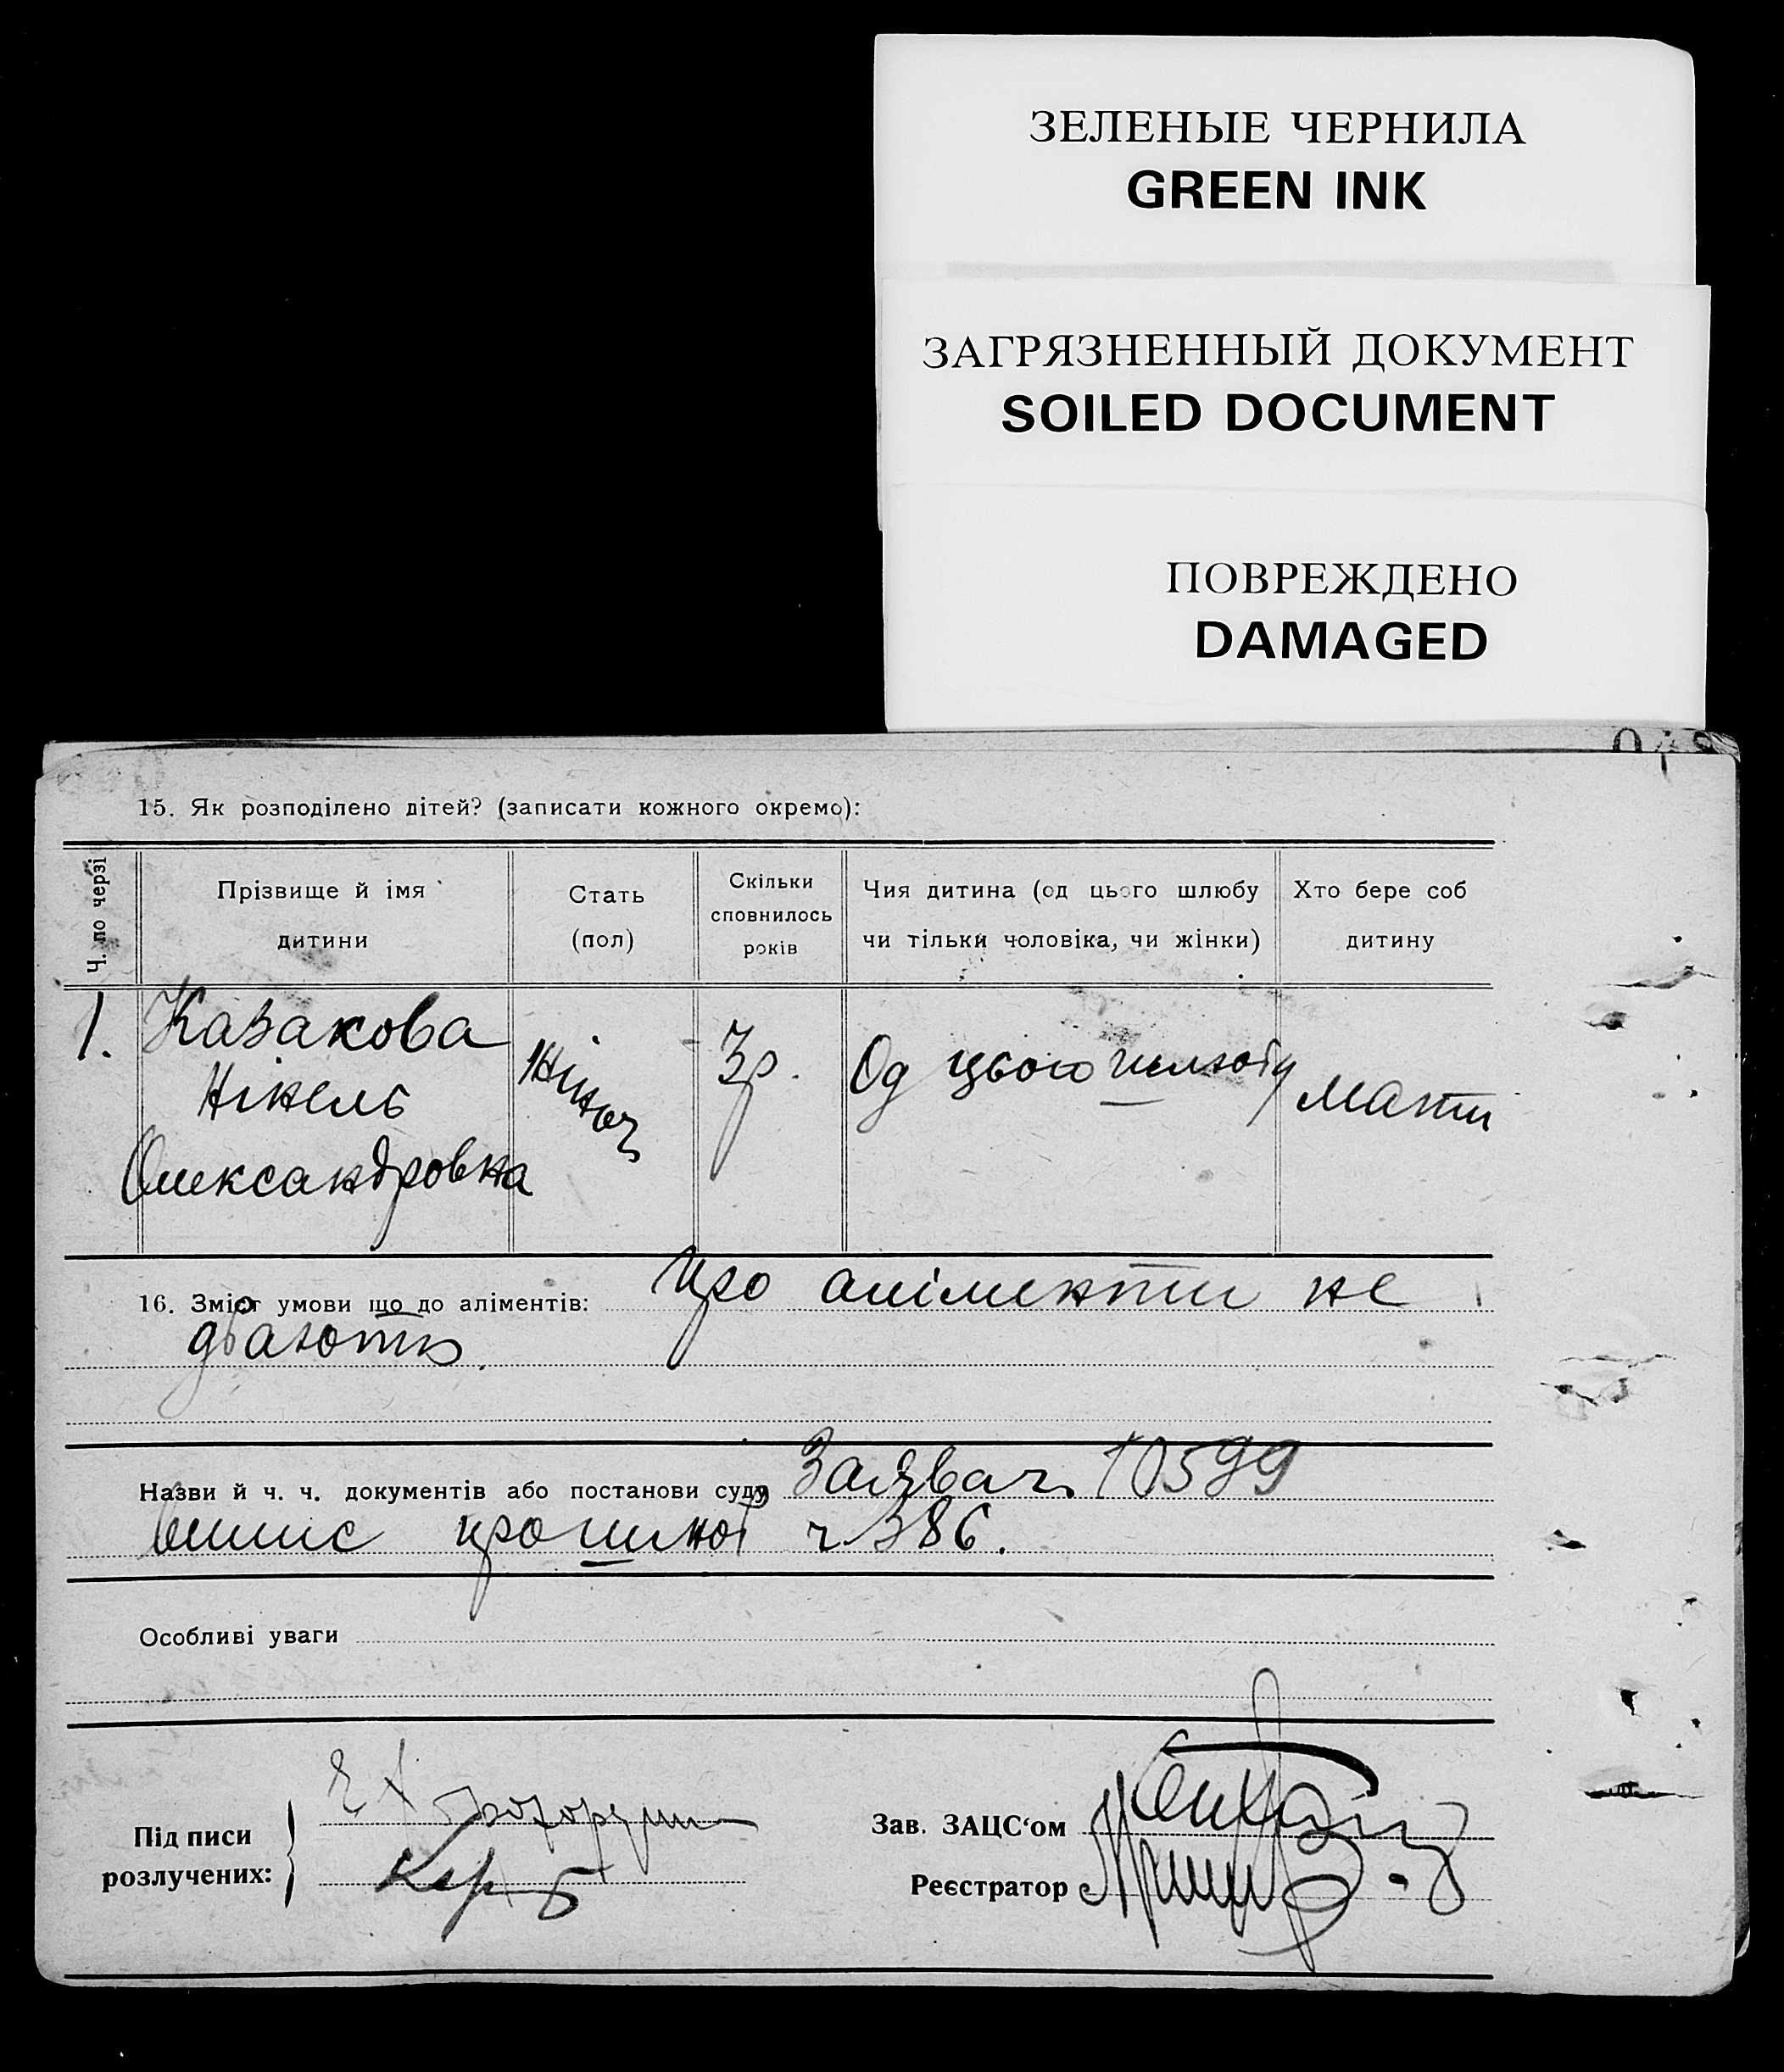 ЗЕЛЕНЫЕ ЧЕРНИЛА
GREEN INK
ЗАГРЯЗНЕННЫЙ ДОКУМЕНТ
SOILED DOCUMENT
ПОВРЕЖДЕНО
DAMAGED
15. Як розподілено дітей? (записати кожного окремо):
Ч. по черзі
Прізвище й імя дитини
Стать (пол)
Скільки сповнилось років
Чия дитина (од цього шлюбу чи тільки чоловіка, чи жінки)
Хто бере соб дитину
1. Казакова
Нінель
Олександровна
жіноч
3р.
Од цього шлюбу
мати
16. Зміст умови що до аліментів: про аліменти не
дбають.
Назви й ч. ч. документів або постанови суду Заява ч. 10599
ч 386.
Особливі уваги
Під писи
розлучених:
Зав. ЗАЦС‘ом
Реєстратор